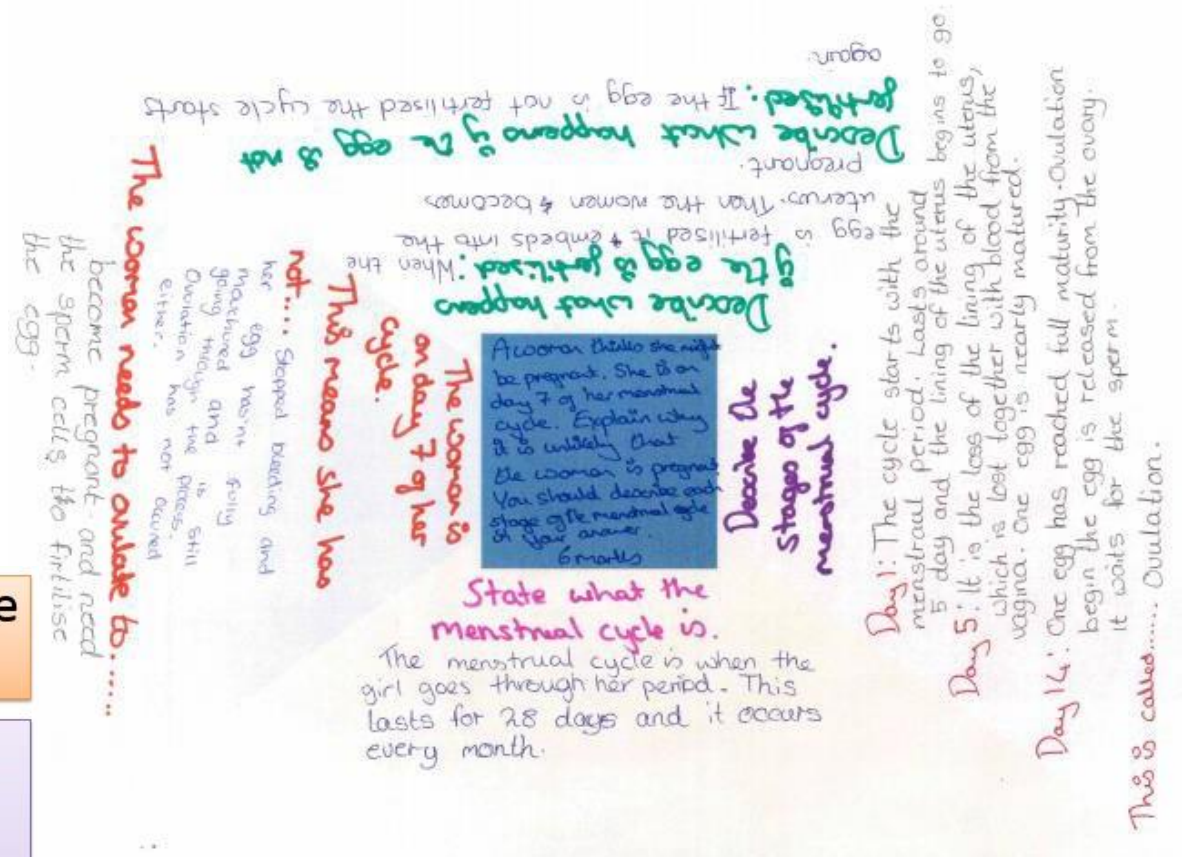 A woman thinks she might
be pregnant. She is on
day 7 of her menstrual
cycle. Explain why
it is unlikely that
the woman is pregnant
You should describe each
stage of the menstrual cycle
in your answer.
6 marks
State what the
menstrual cycle is.
The menstrual cycle is when the
girl goes through her period. This
lasts for 28 days and it occurs
every month.
Describe the
stages of the
menstrual cycle.
Day 1: The cycle starts with the
menstraul Period. Lasts around
5 day and the lining of the uterus begins to go.
Day 5: It is the loss of the lining of the uterus,
which is lost together with blood from the
vagina. One egg is nearly matured.
Day 14: One egg has reached full maturity. Ovulation
begin the egg is released from the ovary.
It waits for the sperm.
This is called...... Ovulation.
Describe what happens
if the egg is fertilised: When the
egg is fertilised it embeds into the
uterus. Then the women becomes
pregnant.
Describe what happens if the egg is not
fertilised: If the egg is not fertilised the cycle starts
again.
The woman is
on day 7 of her
cycle.
This means she has
not.... Stopped bleeding and
her egg hasn't fully
matchured and is still
going through the process.
Ovulation has not occured
either.
The woman needs to ovulate to......
become pregnant and need
the sperm cells to firtilise
the egg.
e